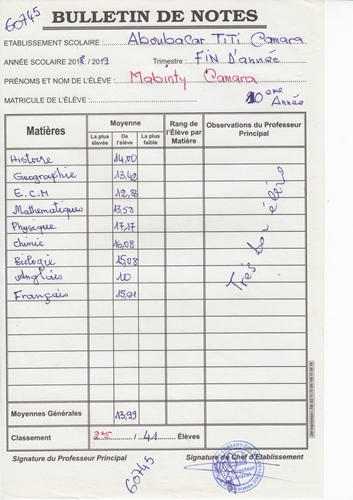 60745
BULLETIN DE NOTES
ETABLISSEMENT SCOLAIRE : Aboubacar TiTi Camara
ANNÉE SCOLAIRE 2018 / 2019 Trimestre : FiN D'année
PRÉNOMS ET NOM DE L'ÉLÈVE : Mabinty Camara
MATRICULE DE L'ÉLÈVE : 10eme Année
Matières Moyenne Rang de l'Élève par Matière Observations du Professeur Principal
La plus élevée De l'élève La plus faible
Histoire 14,00
Geographie 13,42
E.C.M 12,78
Mathematiques 13,50
Physique 17,17
chimie 16,08
Biologie 15,08
Anglais 10
Français 15,91
Très bon élève
Moyennes Générales 13,99
Classement 2e / 41 Élèves
Signature du Professeur Principal Signature de Chef d'Établissement
60745